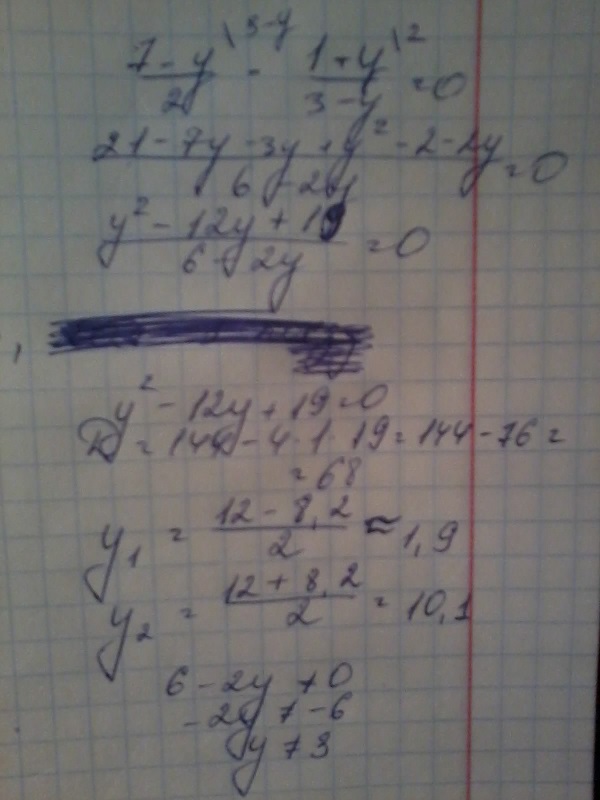 7-y \3-y - 1+y \2 = 0
2 3-y
21-7y-3y+y²-2-2y = 0
6-2y
y²-12y+19 = 0
6-2y
y²-12y+19=0
D=144-4·1·19=144-76=
=68
y₁ = 12-8,2 ≈ 1,9
2
y₂ = 12+8,2 = 10,1
2
6-2y≠0
-2y≠-6
y≠3